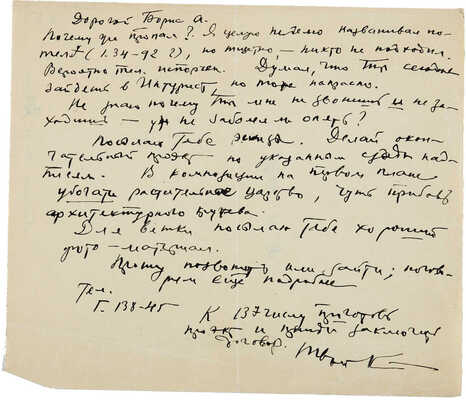 Дорогой Борис А.
Почему ты пропал? Я целую неделю названивал по
тел. (1.34-92?), но тщетно – никто не подходил.
Вероятно тел. испорчен. Думал, что ты сегодня
зайдешь в Интурист, но тоже напрасно.
Не знаю почему Ты мне не звонишь и не за-
ходишь – уж не заболел ли опять?
Посылаю Тебе эскизы. Делай окон-
чательный проект по указанным сзади над-
писям. В композиции на первом плане
убогати растительное царство, чуть прибавь
архитектурного кружева.
Для ветки посылаю Тебе хороший
фото-материал.
Прошу позвонить или зайти; погово-
рим ещё подробнее
Тел.
Г. 138-45
К 13 числу приготовь
проект и приди заключить
договор. Твой